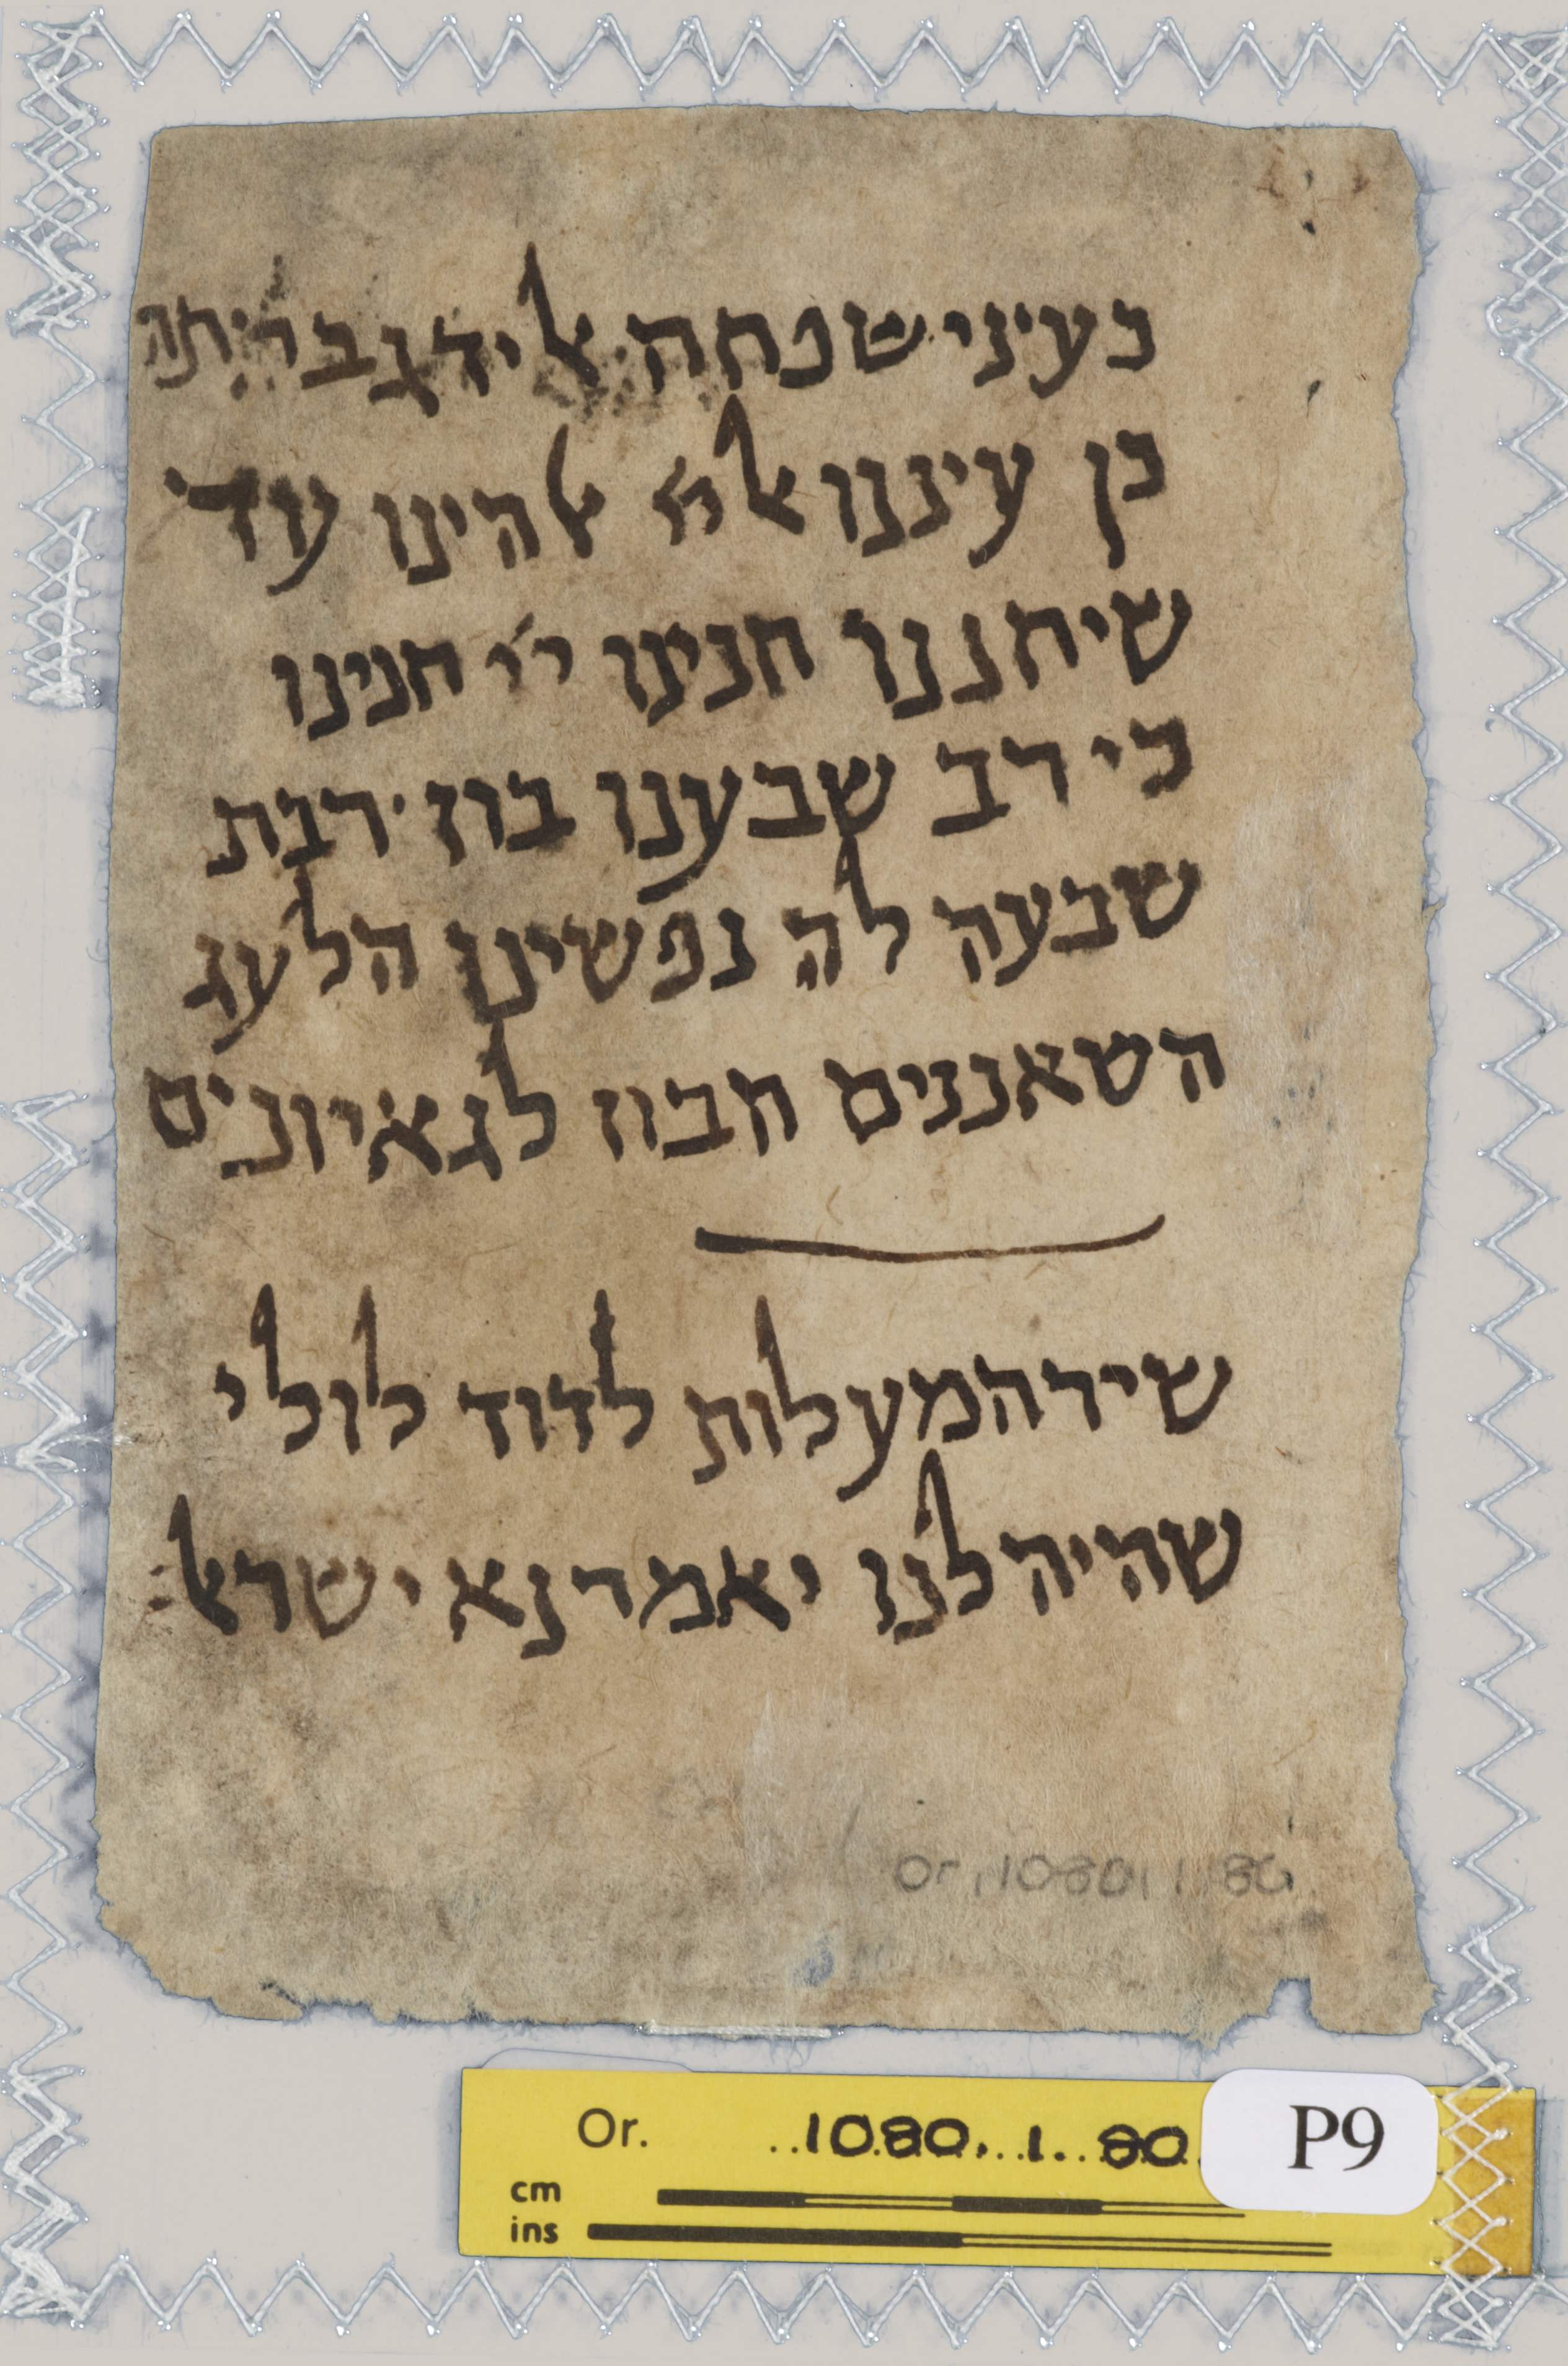 כעיני שפחה אל יד גבריתה
כן עינינו אל ה' אלהינו עד
שיחננו חנינו יי חנינו
כי רב שבענו בוז רבת
שבעה לה נפשינו הלעג
השאננים הבוז לגאיונים
שיר המעלות לדוד לולי
שהיה לנו יאמר נא ישראל
Or. 1080. 1. 80
Or. 1080. 1. 80.
P9
cm
ins